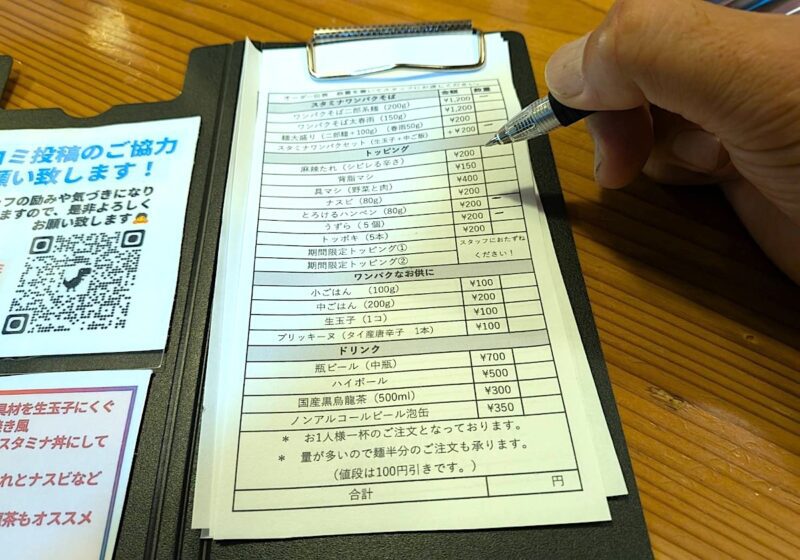 コミ投稿のご協力
願い致します！
ッフの励みや気づきになり
ますので、是非よろしく
お願い致します🙇
具材を生玉子にくぐ
焼き風
スタミナ丼にして
れとナスビなど
龍茶もオススメ
スタミナワンパクそば 金額 数量
ワンパクそば二郎系麺 (200g) ¥1,200 一
ワンパクそば太春雨 (150g) ¥1,200
麺大盛り (二郎麺+100g) (春雨50g) ¥200
スタミナワンパクセット (生玉子+中ご飯) +¥200 一
トッピング
麻辣だれ (シビレる辛さ) ¥200
背脂マシ ¥150
具マシ (野菜と肉) ¥400
ナスビ (80g) ¥200
とろけるハンペン (80g) ¥200 一
うずら (5個) ¥200 一
トッポキ (5本) ¥200
期間限定トッピング① スタッフにおたずね
期間限定トッピング② ください！
ワンパクなお供に
小ごはん (100g) ¥100
中ごはん (200g) ¥200
生玉子 (1コ) ¥100
プリッキーヌ (タイ産唐辛子 1本) ¥100
ドリンク
瓶ビール (中瓶) ¥700
ハイボール ¥500
国産黒烏龍茶 (500ml) ¥300
ノンアルコールビール泡缶 ¥350
* お1人様一杯のご注文となっております。
* 量が多いので麺半分のご注文も承ります。
(値段は100円引きです。)
合計 円